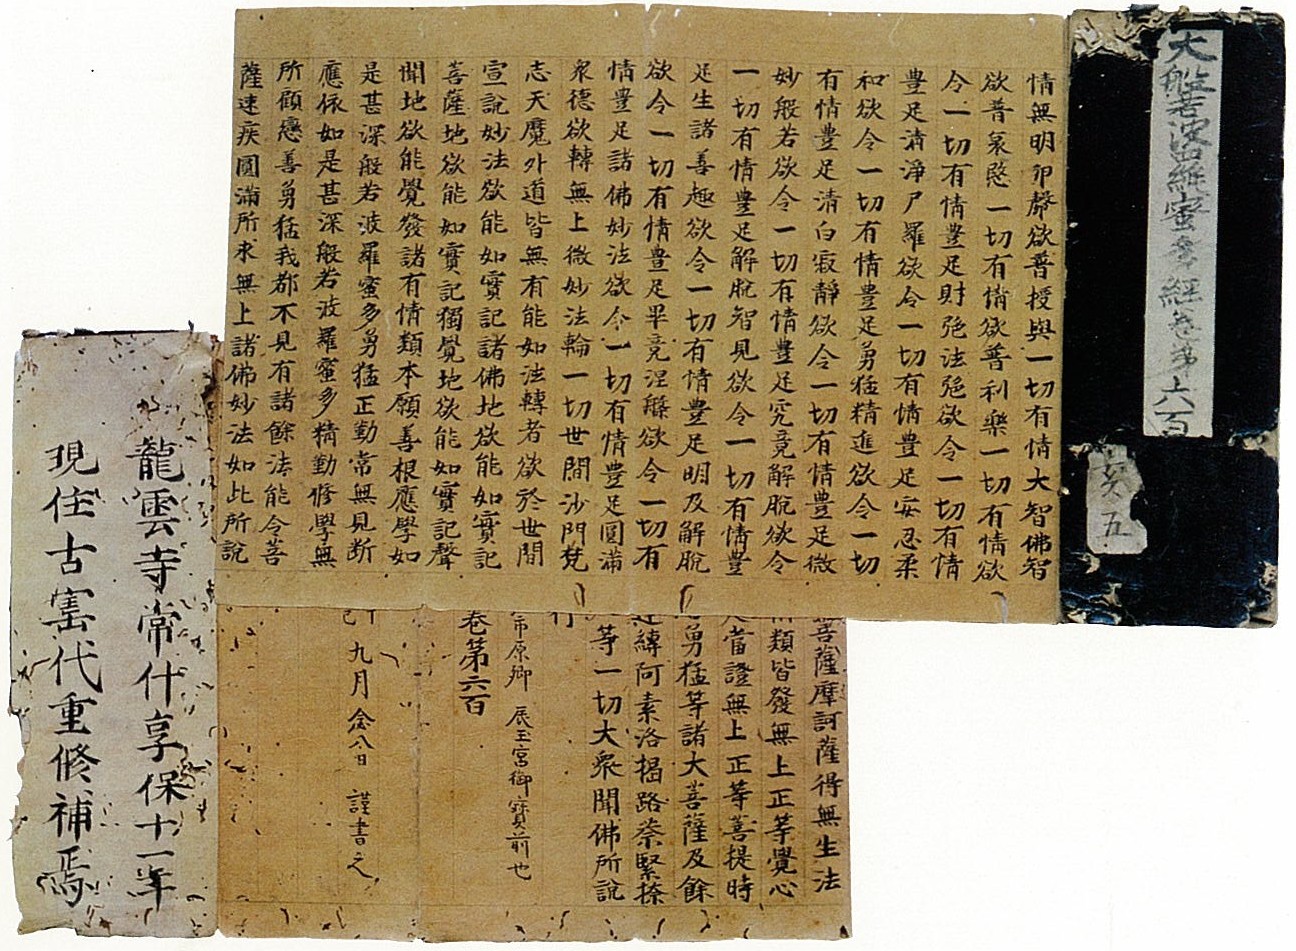 大般若波羅蜜多経巻第六百
亥五
情無明卵㲉欲普授與一切有情大智佛智
欲普哀愍一切有情欲普利樂一切有情欲
令一切有情豊足財施法施欲令一切有情
豊足清淨尸羅欲令一切有情豊足安忍柔
和欲令一切有情豊足勇猛精進欲令一切
有情豊足清白寂靜欲令一切有情豊足微
妙般若欲令一切有情豊足究竟解脫欲令
一切有情豊足解脫智見欲令一切有情豊
足生諸善趣欲令一切有情豊足明及解脫
欲令一切有情豊足畢竟涅槃欲令一切有
情豊足諸佛妙法欲令一切有情豊足圓滿
衆德欲轉無上微妙法輪一切世間沙門梵
志天魔外道皆無有能如法轉者欲於世間
宣說妙法欲能如實記諸佛地欲能如實記
菩薩地欲能如實記獨覺地欲能如實記聲
聞地欲能覺發諸有情類本願善根應學如
是甚深般若波羅蜜多勇猛正勤常無見断
應依如是甚深般若波羅蜜多精勤修學無
所顧戀善勇猛我都不見有諸餘法能令善
薩速疾圓滿所求無上諸佛妙法如此所說
菩薩摩訶薩得無生法
情類皆發無上正等覺心
當證無上正等菩提時
勇猛等諸大菩薩及餘
縛阿素洛揭路荼緊捺
等一切大衆聞佛所說
行
卷第六百
原郷 辰王宮御寶前也
九月念八日 謹書之
龍雲寺常什享保十一年
現住古窰代重修補焉